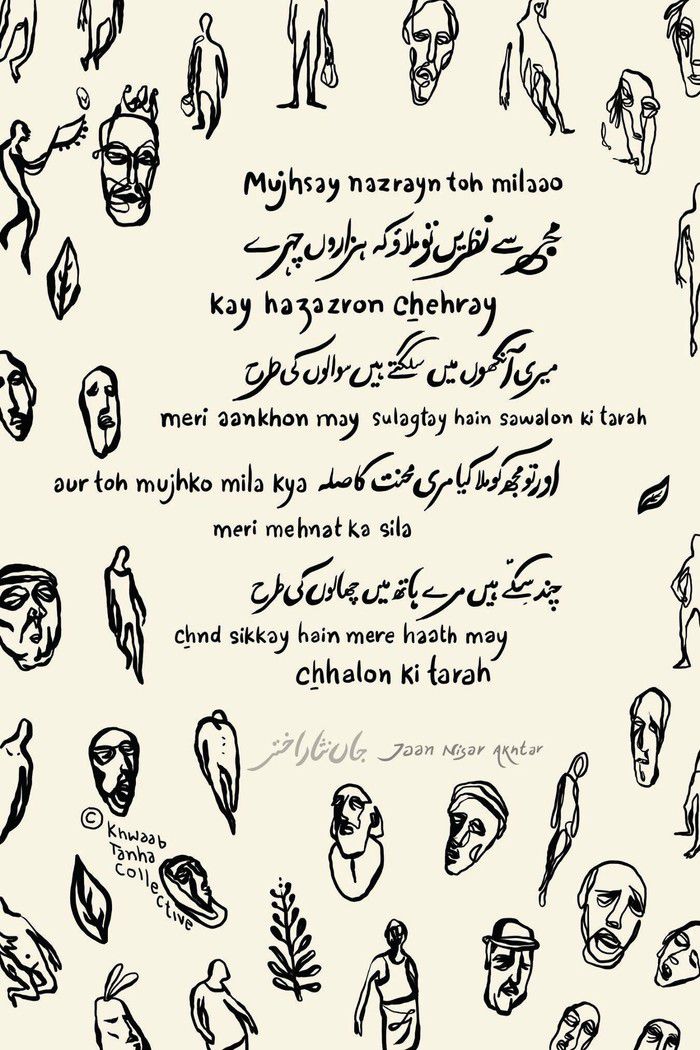 Mujhsay nazrayn toh milaao
مجھ سے نظریں تو ملاؤ کہ ہزاروں چہرے
Kay hazazron chehray
میری آنکھوں میں سلگتے ہیں سوالوں کی طرح
meri aankhon may sulagtay hain sawalon ki tarah
aur toh mujhko mila kya اور تو مجھ کو ملا کیا مری محنت کا صلہ
meri mehnat ka sila
چند سِکّے ہیں مرے ہاتھ میں چھالوں کی طرح
chnd sikkay hain mere haath may
chhalon ki tarah
جاں نثار اختر Jaan Nisar Akhtar
© Khwaab
Tanha
Colle
ctive